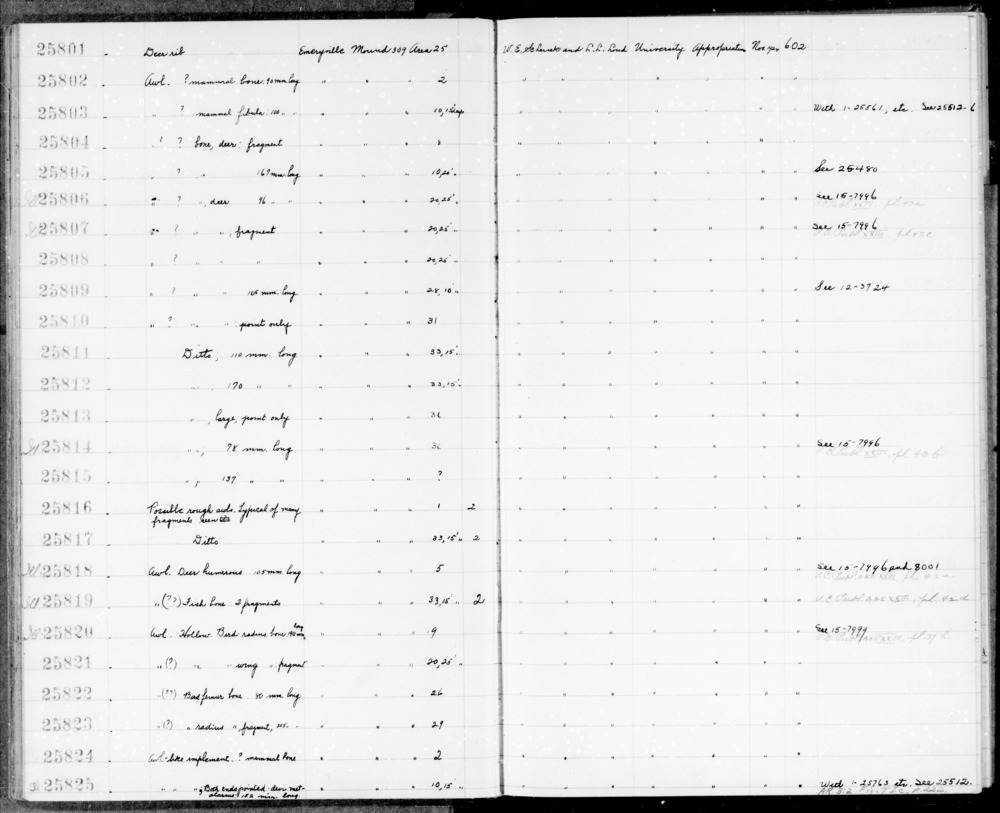 25801 Deer rib Emeryville Mound 309 Area 25 W.E. Schenck and L.L. Loud University Appropriation Nov. 602
25802 Awl. ? mammal bone. 90 mm long " " " 2 " " " " " "
25803 " ? mammal fibula. 100 " " " " " 10, 15' deep " " " " " " With 1-25561, etc. See 25512-6
25804 " ? bone, deer: fragment " " " 8 " " " " "
25805 " ? " " 167 mm long " " " 10, 20' " " " " " " See 25480
25806 " ? ", deer 96 " " " " " 20, 25' " " " " " " See 15-7996
25807 " ? " " , fragment " " " 20, 25' " " " " " " See 15-7996
25808 " ? " " " " " " 20, 25' " " " " " "
25809 " ? " " 105 mm. long " " " 28, 10' " " " " " " See 12-3724
25810 " ? " " point only " " " 31 " " " " " "
25811 Ditto; 110 mm. long " " " 33, 15' " " " " " "
25812 " , 170 " " " " " 33, 15' " " " " " "
25813 " , large, point only " " " 36 " " " " " "
25814 " ", 78 mm. long " " " 36 " " " " " " See 15-7996
pl 43 b
25815 " , 137 " " " " " ? " " " " " "
25816 Possible rough awls. Typical of many " " " 1 2 " " " " " "
fragments seen
25817 Ditto " " " 33, 15' " 2 " " " " " "
25818 Awl. Deer humerous 105 mm long " " " 5 " " " " " " See 15-7996 and 8001
25819 " (??) Fish bone. 3 fragments " " " 33, 15' " 2 " " " " " " U.C. Publ. pl. 42 d
25820 Awl. Hollow Bird radius bone 90 mm long " " " 9 " " " " " " See 15-7999
25821 " (?) " " wing " fragment " " " 20, 25' " " " " " " "
25822 " (??) Bird femur bone 80 mm long " " " 26 " " " " " "
25823 " (?) " radius " fragment, " " " 29 " " " " " "
25824 Awl-like implement. ? mammal bone " " " 2 " " " " " "
25825 " " " , Both ends pointed deer met- " " " 10, 15 " " " " " " With 1-25763 etc. See 25512.
atarsus 152 mm. long.